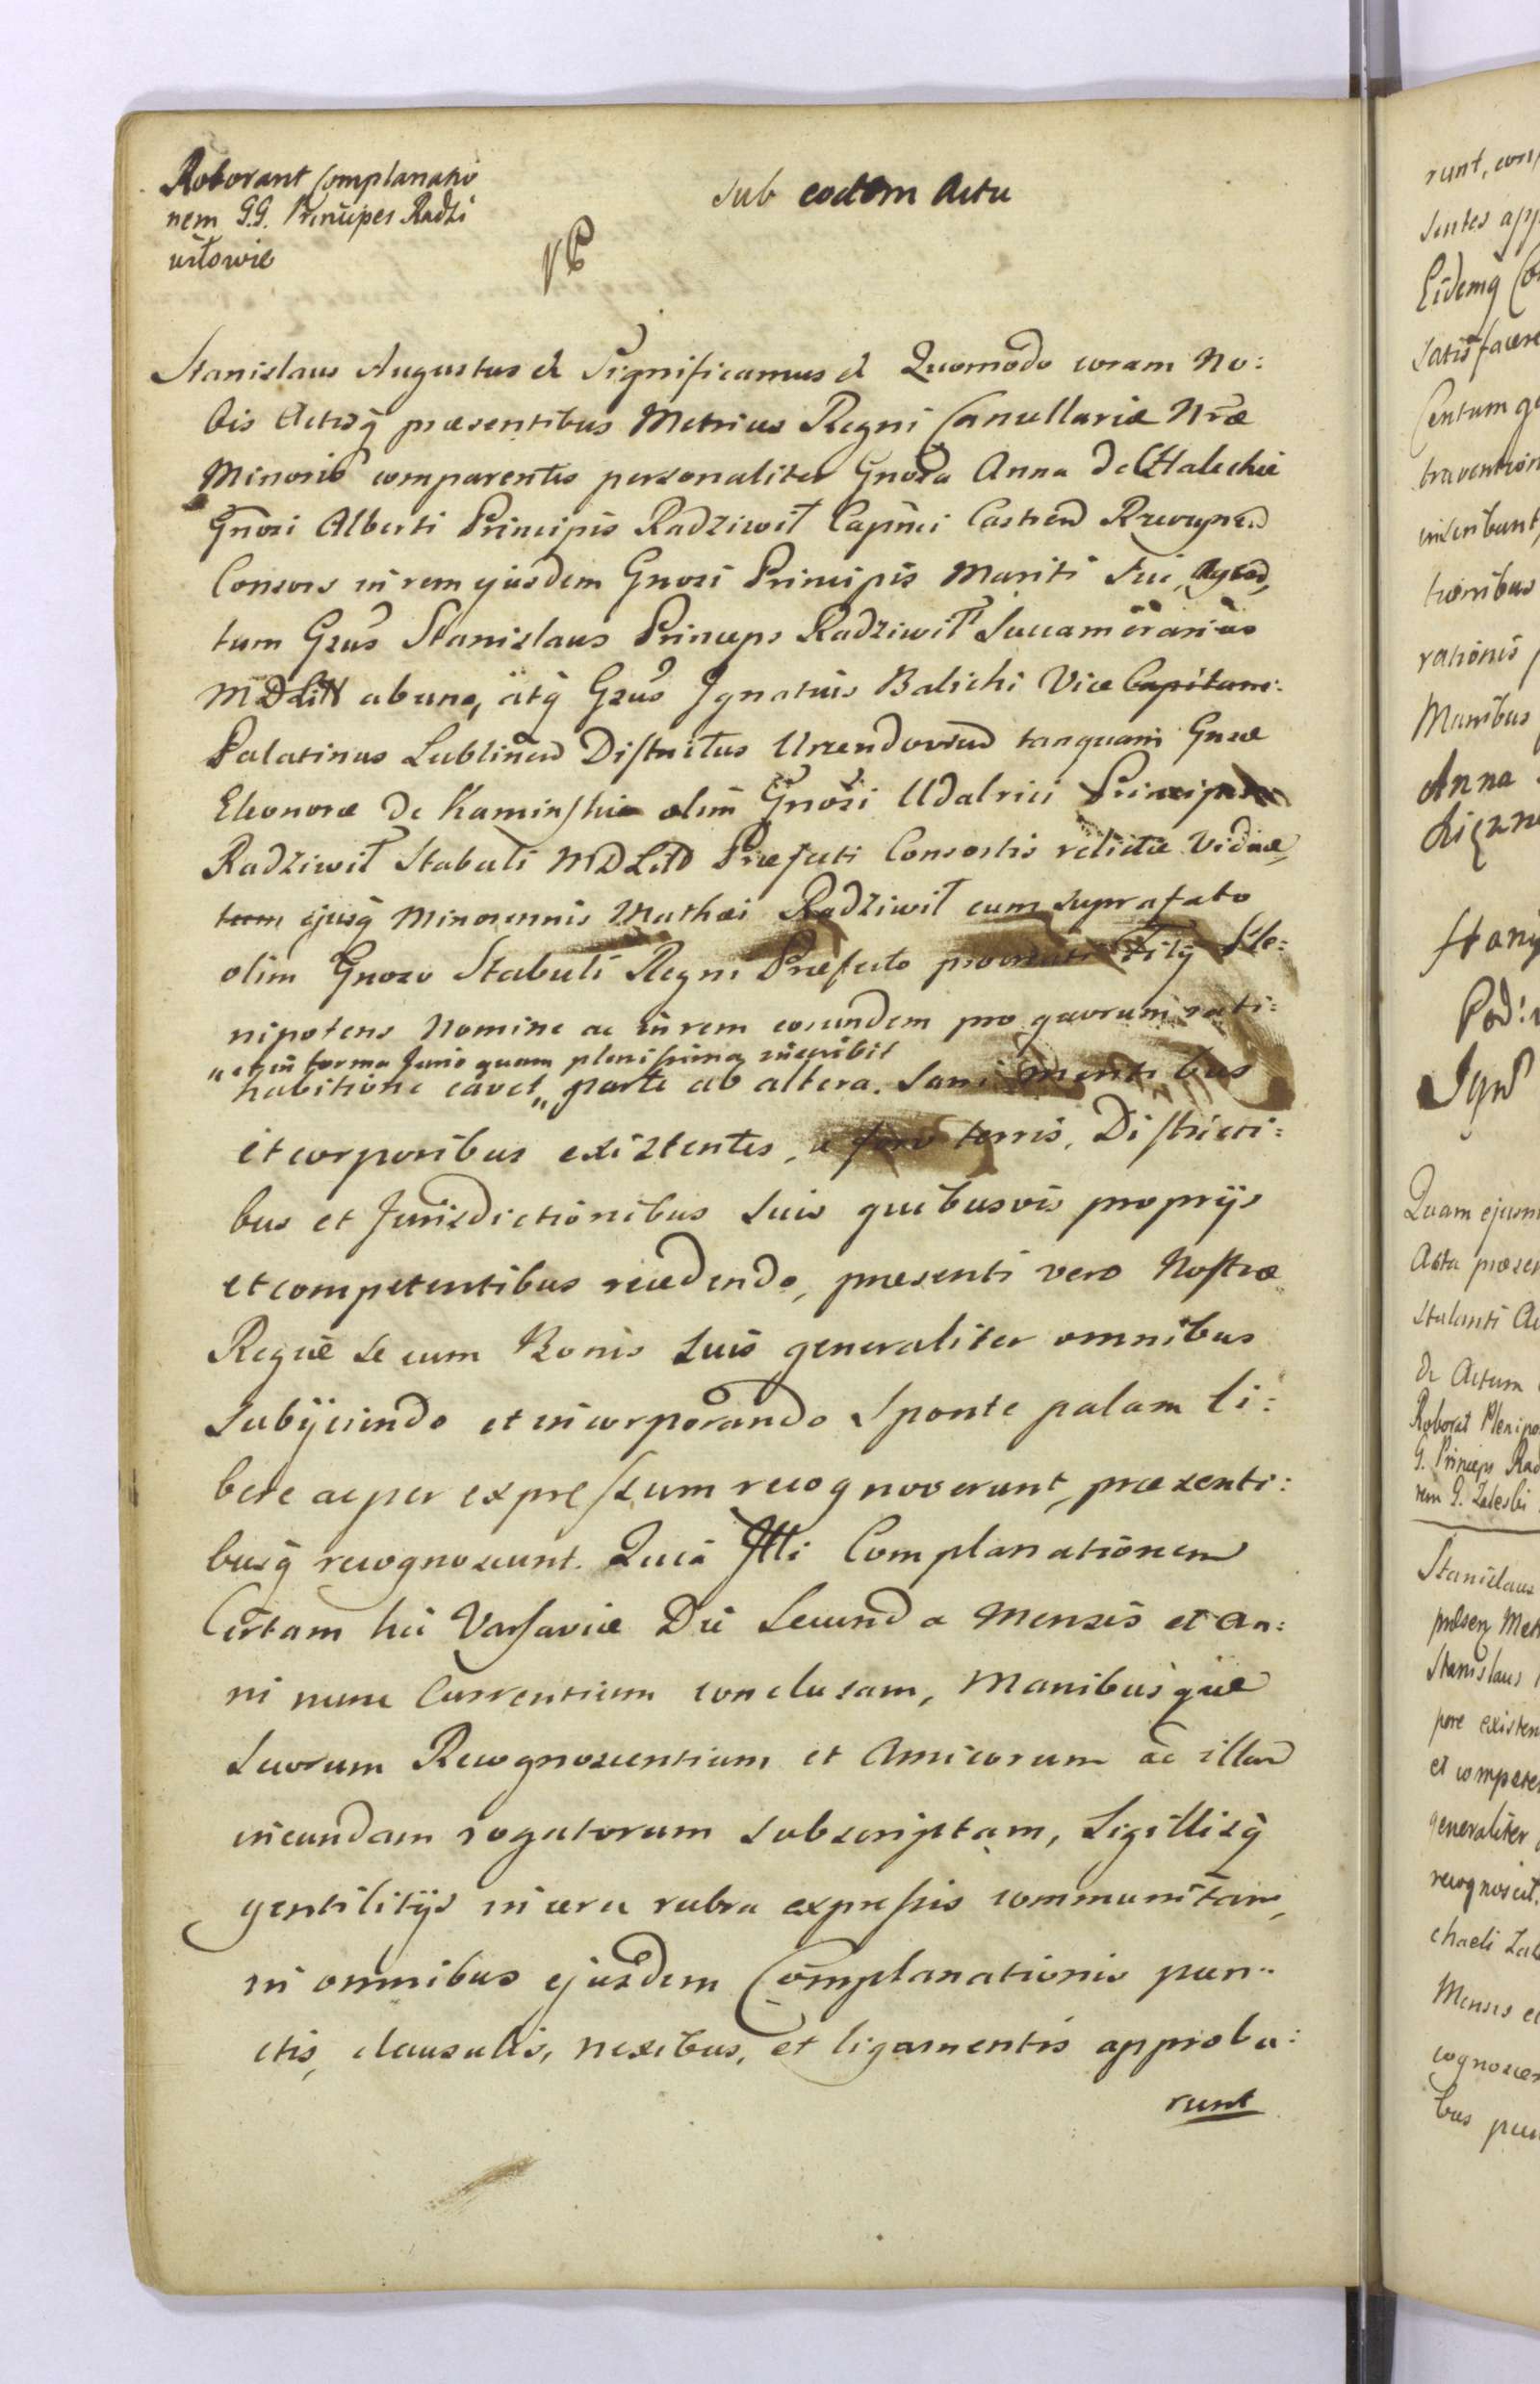 Roborant Complanatio
nem G.G. Principes Radzi
wiłowie
sub eodem Actu
Stanislaus Augustus et Significamus et Quomodo coram No:
bis Actisq̃ præsentibus Metrices Regni Cancellariæ Nr̃æ
Minoris comparentes personaliter Gnosa Anna de Chaleckie
Gnosi Alberti Principis Radziwił Capnei Castren Rzeczycen
Consors in rem ejusdem Gnosi Principis Mariti sui,
tum Gsus Stanislaus Princeps Radziwił Succamerarius
MDLitt ab una, atq̃ Gsus Ignatius Balicki Vice Capitane:
Palatinus Lublinen Districtus Urzendovien tanquam Gnsæ
Eleonoræ de Kaminskie olim Gnosi Udalrici Principis
Radziwił Stabuli MDLitt Præfecti Consortis relictæ Viduæ,
tum ejusq̃ Minorennis Mathæi Radziwił cum suprafato
olim Gnoso Stabuli Regni Præfecto procreati Filij Ple:
nipotens Nomine ac in rem eorundem pro quorum rati:
"et in forma Juris quam plenissima inscribit
habitione cavet" parte ab altera. Sani mentibus
et corporibus existentes, a foro terris, Districti:
bus et Jurisdictionibus suis quibusvis proprijs
et competentibus recedendo, præsenti vero Nostræ
Regiæ se cum Bonis suis generaliter omnibus
subijciendo et incorporando sponte palam li:
bere ac per expressum recognoverunt, præsenti:
busq̃ recognoscunt. Quia Illi Complanationem
Certam hic Varsaviæ Die Secunda Mensis et An:
ni nunc Currentium conclusam, Manibusque
suorum Recognoscentium et Amicorum ad illam
ineundam rogatorum subscriptam, Sigillisq̃
gentilitijs in cera rubra expressis communitam,
in omnibus ejusdem Complanationis pun:
ctis, clausulis, nexibus, et ligamentis approba:
runt
runt,
Eidemq̃
satisfacere
Centum
inscribunt,
tionibus
rationis
Manibus
Anna
Quam
Acta
stulanti
de Actum
Roborat
G. Princeps
rem G. Zaleski
Stanislaus
præsen
Stanislaus
pore
et
generaliter
recognoscit.
chaeli
Mensis et
bus